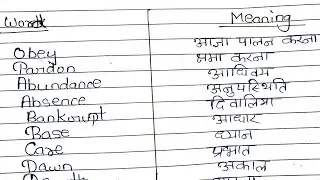 Word Meaning
Obey आज्ञा पालन करना
Pardon क्षमा करना
Abundance आधिक्य
Absence अनुपस्थिति
Bankrupt दिवालिया
Base आधार
Care ध्यान
Dawn प्रभात
अकाल